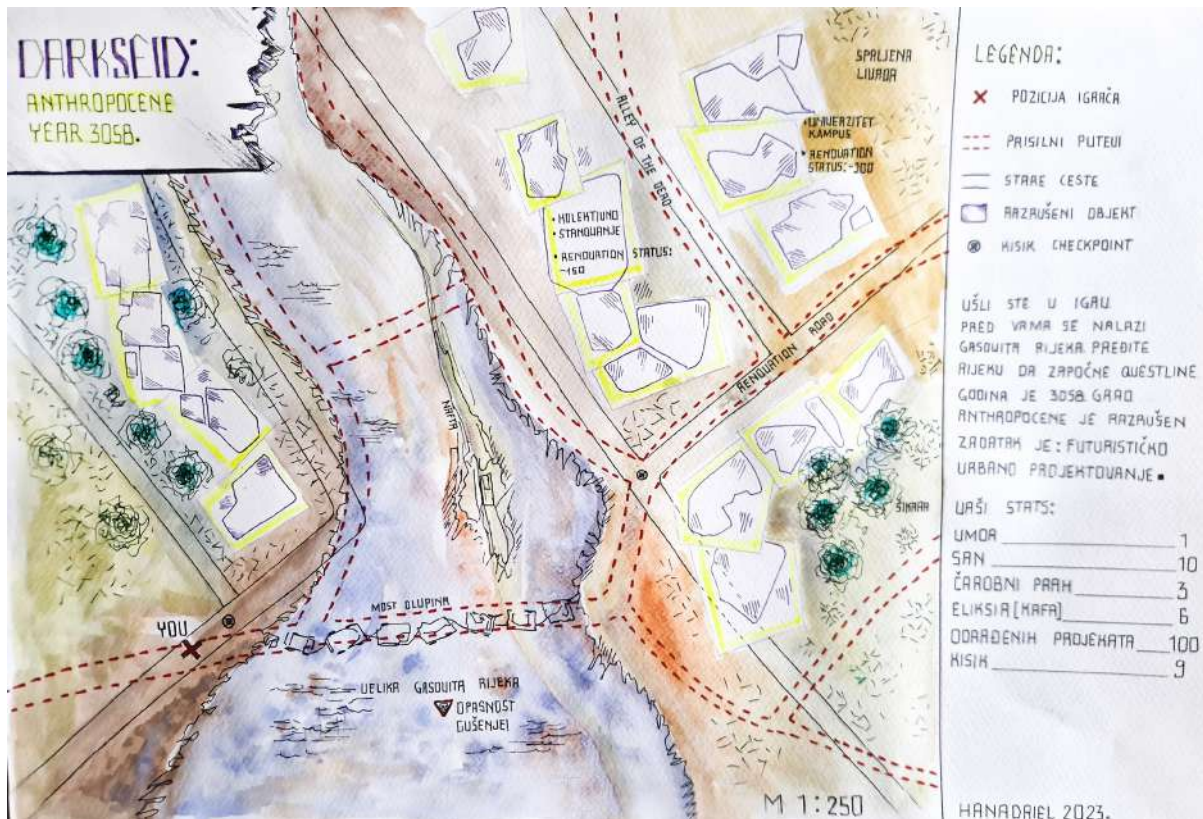 DARKSEID:
ANTHROPOCENE
YEAR 3058.
ALLEY OF THE DEAD
SPRLJENA
LIVADA
• UNIVERZITET
KAMPUS
• RENOVATION
STATUS: -300
• KOLEKTIVNO
• STANOVANJE
• RENOVATION STATUS:
-150
RENOVATION ROAD
NAFTA
ŠIKARA
MOST OLUPINA
YOU
VELIKA GASOVITA RIJEKA
OPASNOST
GUŠENJE!
M 1:250
LEGENDA:
POZICIJA IGRAČA
PRISILNI PUTEVI
STARE CESTE
RAZRUŠENI OBJEKT
KISIK CHECKPOINT
UŠLI STE U IGRU.
PRED VAMA SE NALAZI
GASOVITA RIJEKA. PREĐITE
RIJEKU DA ZAPOČNE QUESTLINE
GODINA JE 3058. GRAD
ANTHROPOCENE JE RAZRUŠEN
ZADATAK JE: FUTURISTIČKO
URBANO PROJEKTOVANJE.
VAŠI STATS:
UMOR 1
SAN 10
ČAROBNI PRAH 3
ELIKSIR [KAFA] 6
ODRAĐENIH PROJEKATA 100
KISIK 9
HANADRIEL 2023.